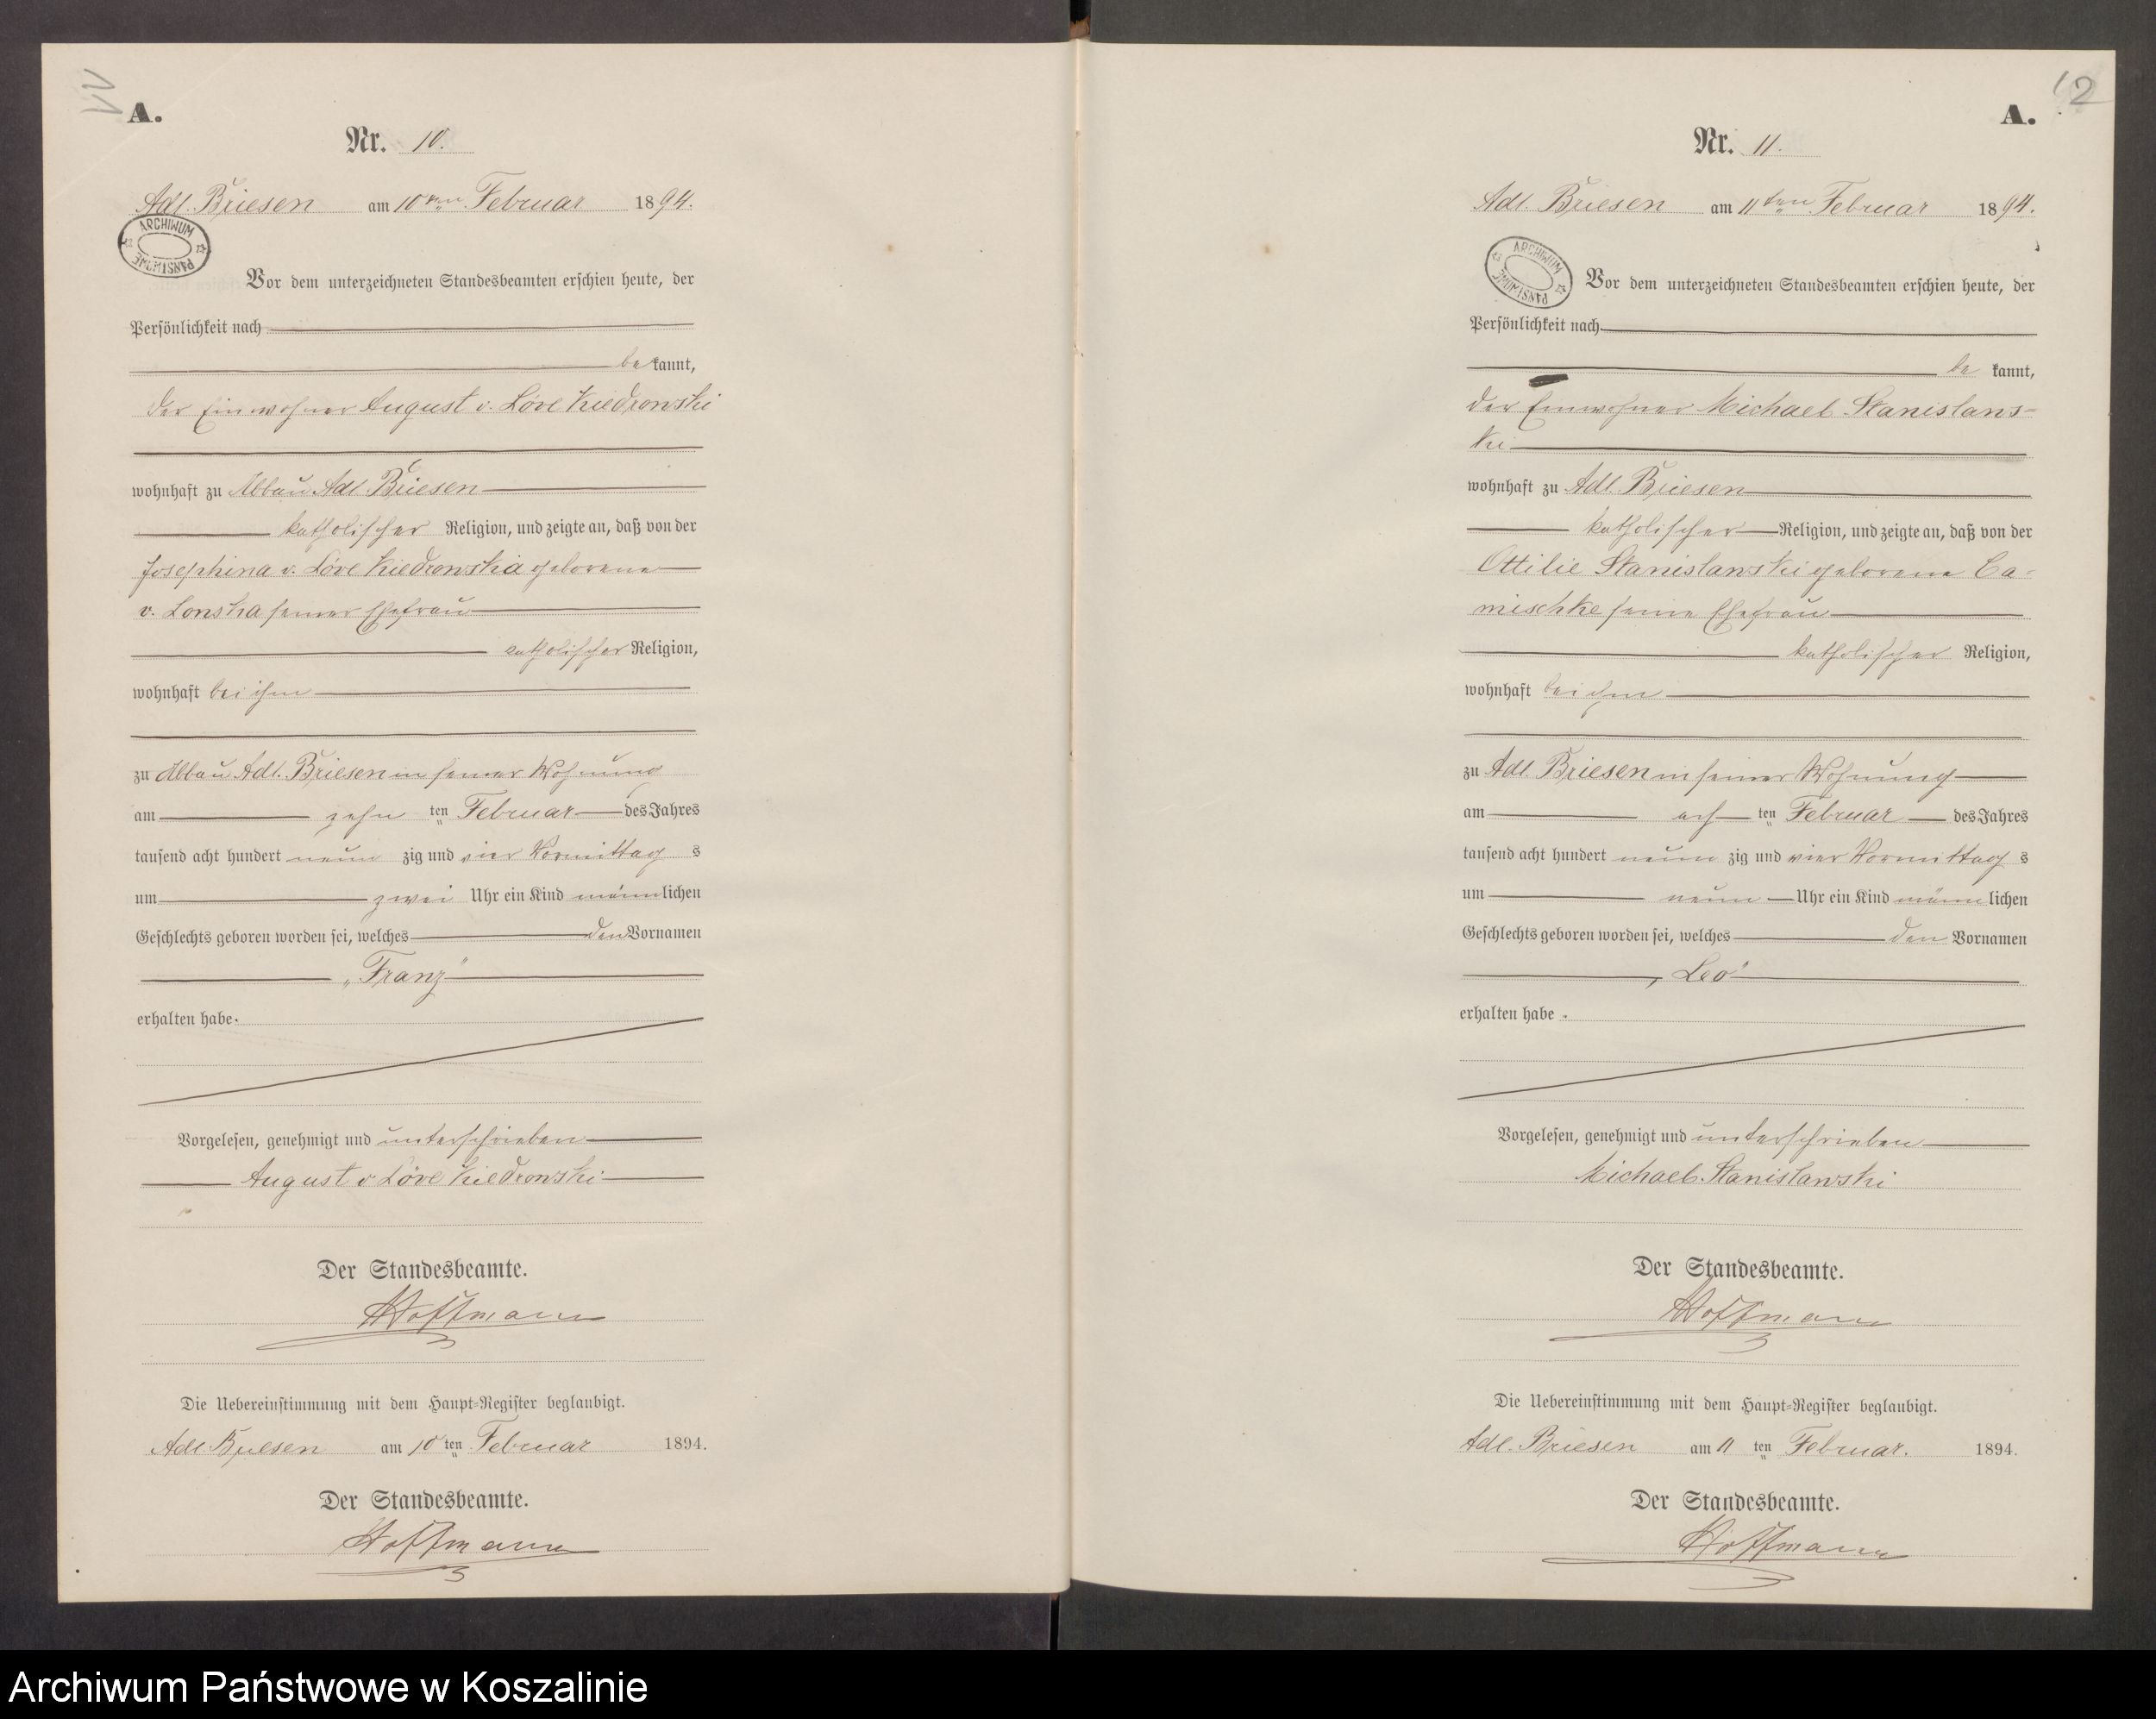 A.
Nr. 10.
Adl. Briesen am 10ten Februar 1894.
ARCHIWUM PAŃSTWOWE
Vor dem unterzeichneten Standesbeamten erschien heute, der
Persönlichkeit nach
be kannt,
der Einwohner August v. Löve Kiedrowski
wohnhaft zu Abbau Adl. Briesen
katholischer Religion, und zeigte an, daß von der
Josephina v. Löve Kiedrowska geborene
v. Lonska seiner Ehefrau
katholischer Religion,
wohnhaft bei ihm
zu Abbau Adl. Briesen in seiner Wohnung
am zehn ten Februar des Jahres
tausend acht hundert neun zig und vier Vormittag s
um zwei Uhr ein Kind männlichen
Geschlechts geboren worden sei, welches den Vornamen
„Franz“
erhalten habe.
Vorgelesen, genehmigt und unterschrieben
August v Löve Kiedrowski
Der Standesbeamte.
Hoffmann
Die Uebereinstimmung mit dem Haupt-Register beglaubigt.
Adl. Briesen am 10 ten Februar 1894.
Der Standesbeamte.
Hoffmann
A.
12
Nr. 11.
Adl. Briesen am 11ten Februar 1894.
ARCHIWUM PAŃSTWOWE
Vor dem unterzeichneten Standesbeamten erschien heute, der
Persönlichkeit nach
be kannt,
der Einwohner Michael Stanislaws-
ki
wohnhaft zu Adl. Briesen
katholischer Religion, und zeigte an, daß von der
Ottilie Stanislawski geborene Ca-
mischke seine Ehefrau
katholischer Religion,
wohnhaft bei ihm
zu Adl. Briesen in seiner Wohnung
am ach ten Februar des Jahres
tausend acht hundert neun zig und vier Vormittag s
um neun Uhr ein Kind männlichen
Geschlechts geboren worden sei, welches den Vornamen
„Leo“
erhalten habe.
Vorgelesen, genehmigt und unterschrieben
Michael Stanislawski
Der Standesbeamte.
Hoffmann
Die Uebereinstimmung mit dem Haupt-Register beglaubigt.
Adl. Briesen am 11 ten Februar. 1894.
Der Standesbeamte.
Hoffmann
Archiwum Państwowe w Koszalinie